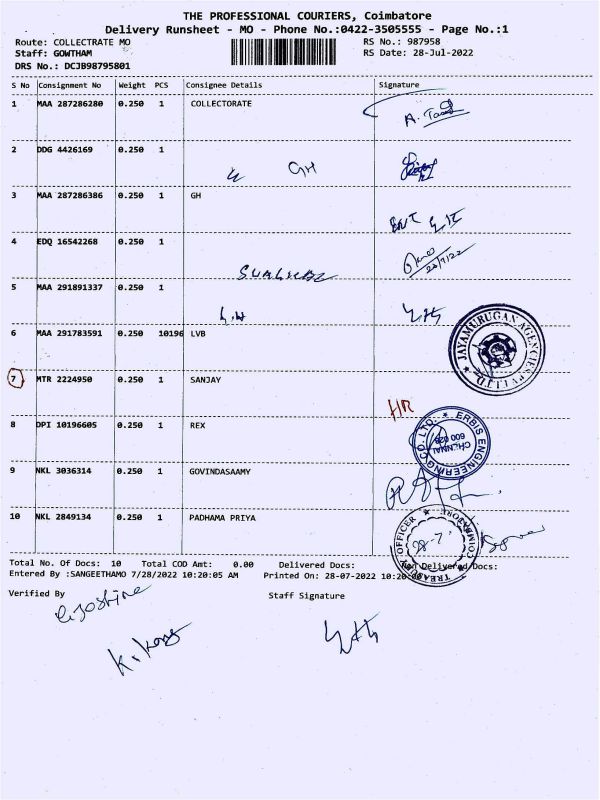 THE PROFESSIONAL COURIERS, Coimbatore
Delivery Runsheet - MO - Phone No.:0422-3505555 - Page No.:1
Route: COLLECTRATE MO RS No.: 987958
Staff: GOWTHAM RS Date: 28-Jul-2022
DRS No.: DCJB98795801
S No Consignment No Weight PCS Consignee Details Signature
1 MAA 287286280 0.250 1 COLLECTORATE
2 DDG 4426169 0.250 1
GH
3 MAA 287286386 0.250 1 GH
4 EDQ 16542268 0.250 1
28/7/22
5 MAA 291891337 0.250 1
6 MAA 291783591 0.250 10196 LVB
JAYAMURUGAN AGENCIES PVT LTD
7 MTR 2224950 0.250 1 SANJAY
HR
8 DPI 10196605 0.250 1 REX
ERBIS ENGINEERING CO. LTD.
CHENNAI
600 028
9 NKL 3036314 0.250 1 GOVINDASAAMY
10 NKL 2849134 0.250 1 PADHAMA PRIYA
TREASURY OFFICER COIMBATORE
28-7
Total No. Of Docs: 10 Total COD Amt: 0.00 Delivered Docs: Non Delivered Docs:
Entered By :SANGEETHAMO 7/28/2022 10:20:05 AM Printed On: 28-07-2022 10:20:06
Verified By Staff Signature